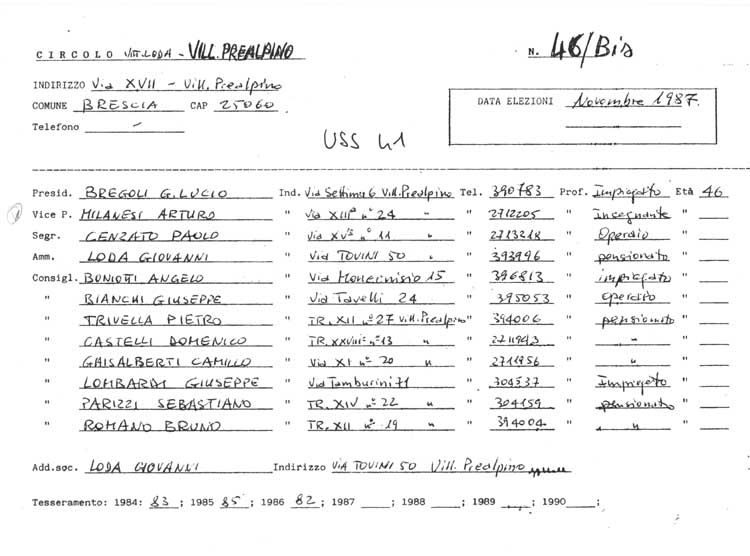 CIRCOLO VITT. LODA - VILL. PREALPINO N. 46/Bis
INDIRIZZO Via XVII - Vill. Prealpino
COMUNE BRESCIA CAP 25060
DATA ELEZIONI Novembre 1987.
Telefono /
USS 41
Presid. BREGOLI G. LUCIO Ind. Via Settima 6 Vill. Prealpino Tel. 390783 Prof. Impiegato Età 46
Vice P. MILANESI ARTURO " Via XIIIª n° 24 " " 2712205 " Insegnante "
Segr. CENZATO PAOLO " Via XVª n° 11 " " 2713218 " Operaio "
Amm. LODA GIOVANNI " Via TOVINI 50 " " 393996 " pensionato "
Consigl. BONIOTTI ANGELO " Via 15 " 396813 " impiegato "
" BIANCHI GIUSEPPE " Via Tavelli 24 " 395053 " operaio "
" TRIVELLA PIETRO " TR. XII n° 27 Vill. Prealpino " 394006 " pensionato "
" CASTELLI DOMENICO " TR. XXVIII n° 13 " " " " "
" GHISALBERTI CAMILLO " Via XI n° 20 " " 2711956 " " "
" LOMBARDI GIUSEPPE " Via Tamburini 71 " 304537 " Impiegato "
" PARIZZI SEBASTIANO " TR. XIV n° 22 " " 304159 " pensionato "
" ROMANO BRUNO " TR. XII n° 19 " " 394004 " " "
Add.soc. LODA GIOVANNI Indirizzo VIA TOVINI 50 Vill. Prealpino
Tesseramento: 1984: 83 ; 1985 85 ; 1986 82 ; 1987 ; 1988 ; 1989 ; 1990 ;